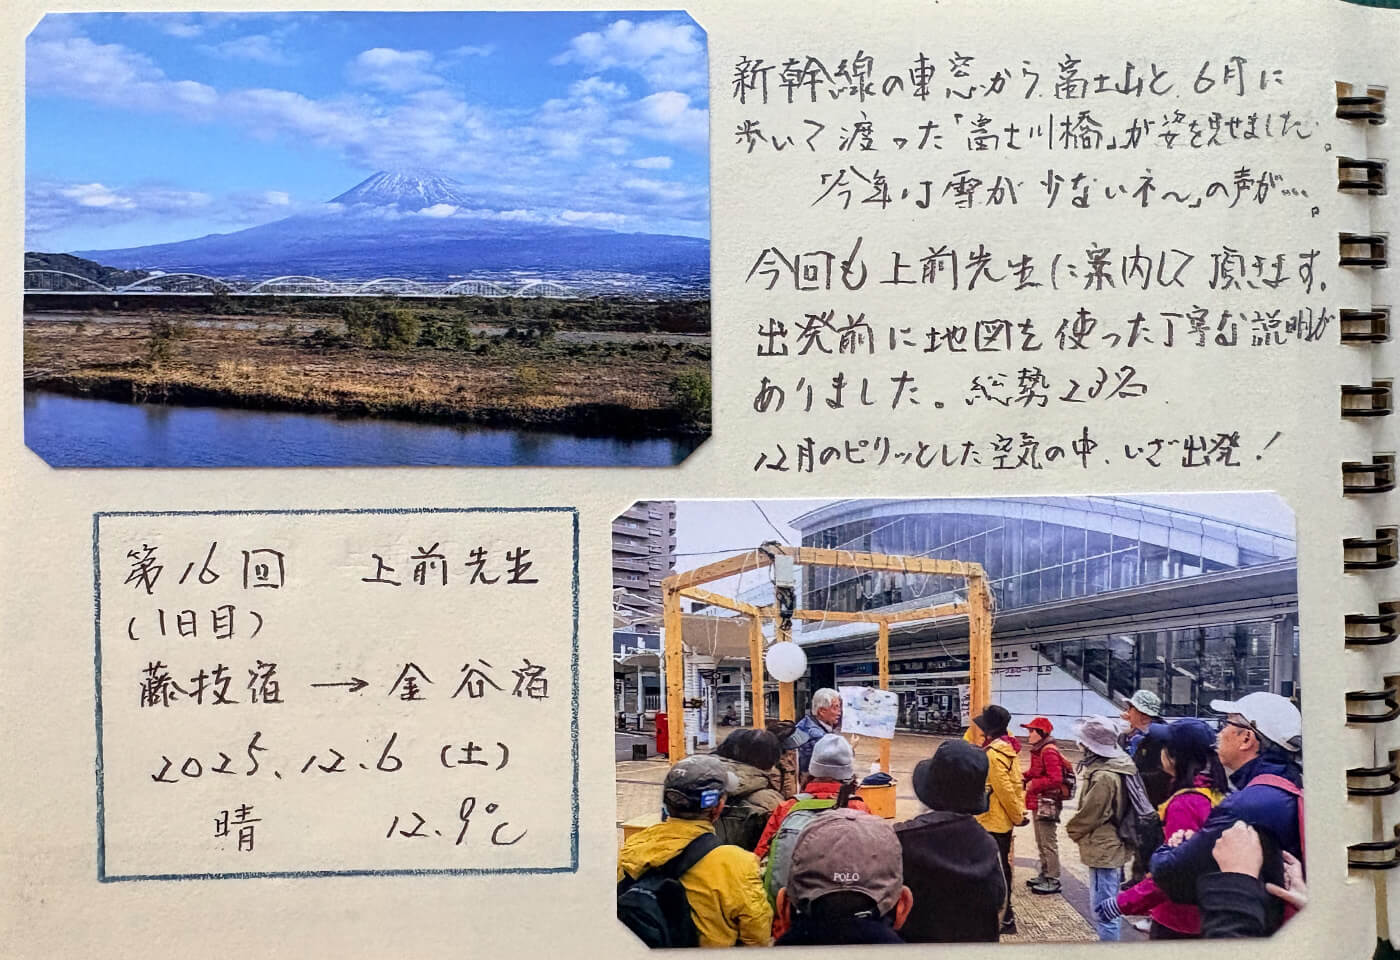 新幹線の車窓から富士山と、6月に
歩いて渡った「富士川橋」が姿を見せました。
「今年は雪が少ないネ〜」の声が…。
今回も上前先生に案内して頂きます。
出発前に地図を使った丁寧な説明が
ありました。総勢23名
12月のピリッとした空気の中、いざ出発！
第16回 上前先生
(1日目)
藤枝宿 → 金谷宿
2025.12.6 (土)
晴 12.9℃
POLO